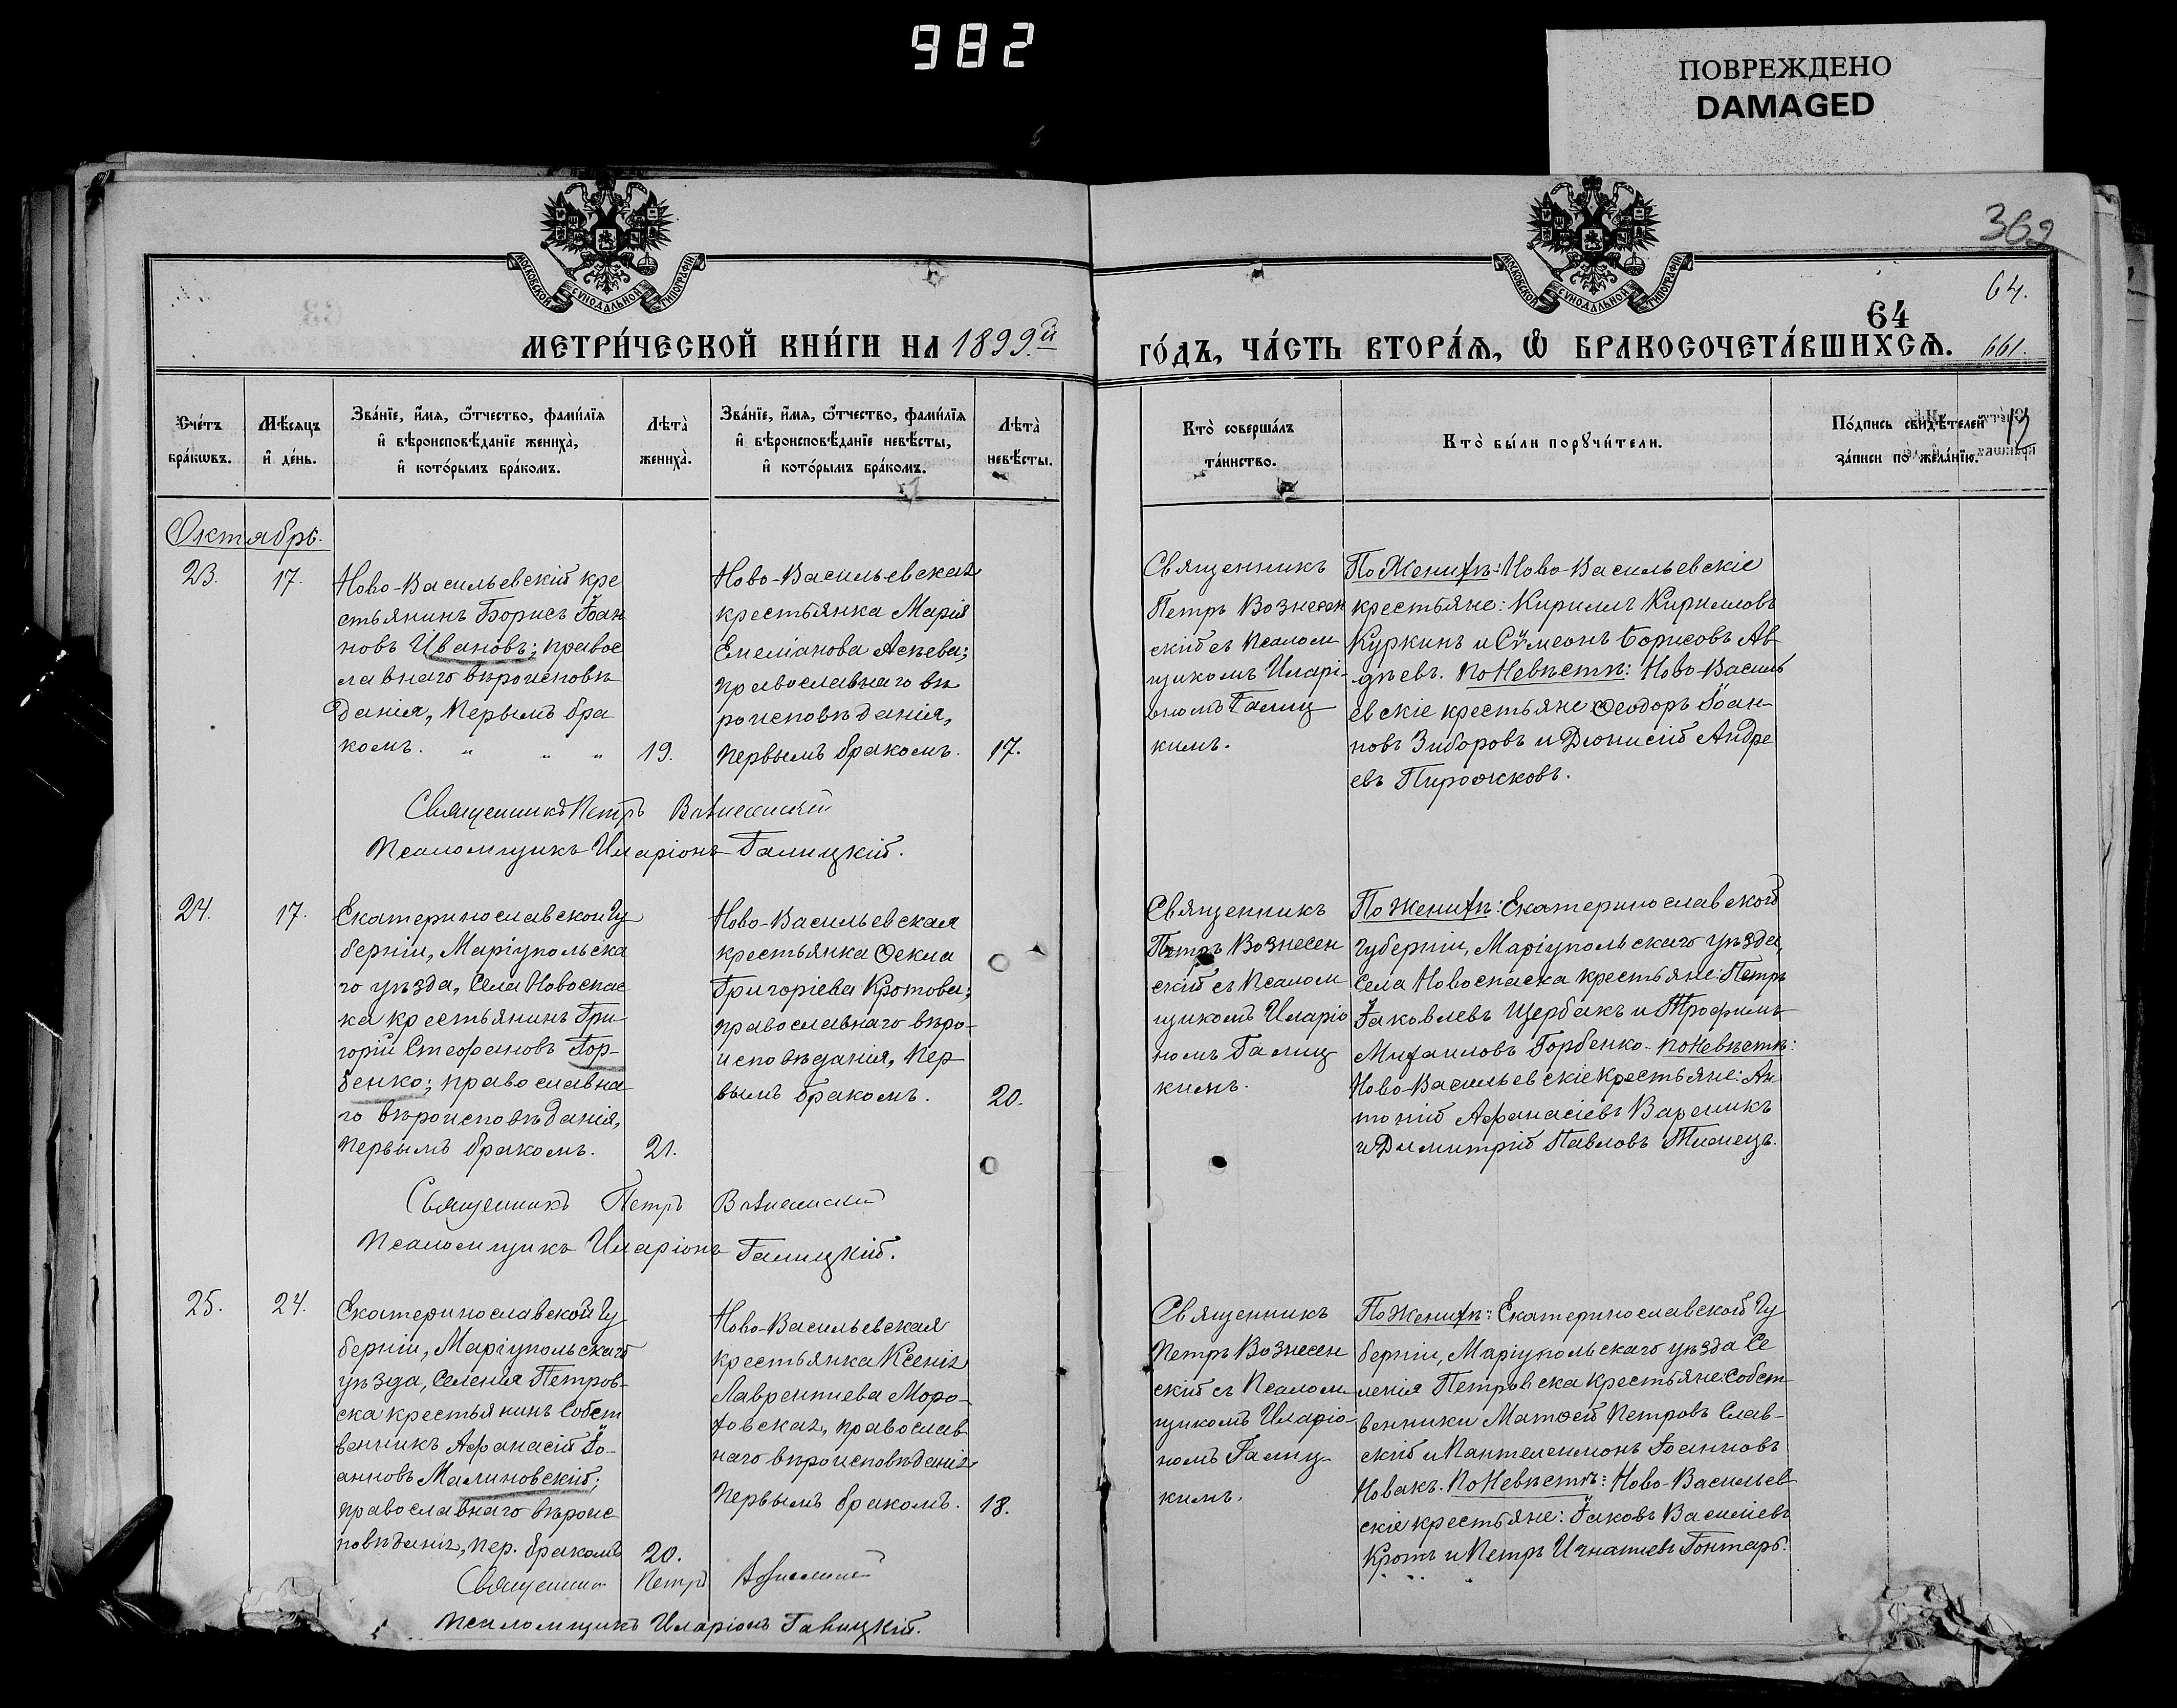 982
ПОВРЕЖДЕНО
DAMAGED
362
МОСКОВСКОЙ СУНОДАЛЬНОЙ ТИПОГРАФІИ
МОСКОВСКОЙ СУНОДАЛЬНОЙ ТИПОГРАФІИ
64.
64
МЕТРИ́ЧЕСКОЙ КНИ́ГИ НА 1899.й
ГО́ДЪ, ЧА́СТЬ ВТОРА́Ѧ, Ѡ БРАКОСОЧЕТА́ВШИХСѦ. 661.
Сче́тъ
бра́кѡвъ.
Мѣ́сяцъ
и҆ де́нь.
Зва́нїе, и҆́мѧ, ѻ҆́тчество, фами́лїѧ
и҆ вѣроисповѣ́данїе жениха̀,
и҆ кото́рымъ бра́комъ.
Лѣта̀
жениха̀.
Зва́нїе, и҆́мѧ, ѻ҆́тчество, фами́лїѧ
и҆ вѣроисповѣ́данїе невѣ́сты,
и҆ кото́рымъ бра́комъ.
Лѣта̀
невѣ́сты.
Кто̀ соверша́лъ
та́инство.
Кто̀ бы́ли порꙋчи́тели.
По́дпись свидѣ́телей
за́писи по жела́нїю.
Октябрь.
23.
17.
Ново-Васильевскій кре
стьянинъ Борисъ Іоан
новъ Ивановъ; правос
лавнаго вѣроисповѣ
данія, первымъ бра
комъ. " " "
19.
Ново-Васильевская
крестьянка Марія
Емеліанова Асѣева;
православнаго вѣ
роисповѣданія,
первымъ бракомъ.
17.
Священникъ
Петръ Вознесен
скій съ псалом
щикомъ Иларі-
ономъ Галиц
кимъ.
По Женихѣ: Ново-Васильевскіе
крестьяне: Кириллъ Кирилловъ
Куркинъ и Сѵмеонъ Борисовъ Ав
дѣевъ. По Невѣстѣ: Ново-Василь
евскіе крестьяне Ѳеодоръ Іоан-
новъ Зиборовъ и Діонисій Андре
евъ Пирожковъ.
Священникъ Петръ Вознесенскій
Псаломщикъ Иларіонъ Галицкій.
24.
17.
Екатеринославской Гу
берніи, Маріупольска
го уѣзда, села Новоспас
ка крестьянинъ Гри-
горій Стефановъ Гор-
бенко; православна
го вѣроисповѣданія,
первымъ бракомъ.
21.
Ново-Васильевская
крестьянка Ѳекла
Григоріева Кротова;
православнаго вѣро-
исповѣданія, пер
вымъ бракомъ.
20.
Священникъ
Петръ Вознесен
скій съ псалом
щикомъ Иларіо
номъ Галиц
кимъ.
По Женихѣ: Екатеринославской
губерніи, Маріупольскаго уѣзда,
села Новоспаска крестьяне: Петръ
Іаковлевъ Щербакъ и Трофимъ
Михаиловъ Горбенко. По Невѣстѣ:
Ново-Васильевскіе крестьяне: Ан
тоній Афанасіевъ Вареникъ
и Димитрій Павловъ
Священникъ Петръ Вознесенскій
Псаломщикъ Иларіонъ Галицкій.
25.
24.
Екатеринославской Гу
берніи, Маріупольскаго
уѣзда, селенія Петров-
ска крестьянинъ собст
венникъ Афанасій Іо-
анновъ Малиновскій;
православнаго вѣроис
повѣданія, пер. бракомъ
20.
Ново-Васильевская
крестьянка Ксенія
Лаврентіева Моро-
ховская, православ
наго вѣроисповѣданія
первымъ бракомъ.
18.
Священникъ
Петръ Вознесен
скій съ псалом-
щикомъ Иларіо-
номъ Галиц-
кимъ.
По Женихѣ: Екатеринославской Гу
берніи, Маріупольскаго уѣзда се
ленія Петровска крестьяне: собст
венники Матѳей Петровъ Слав-
скій и Пантелеимонъ Іоанновъ
Новакъ. По Невѣстѣ: Ново-Васильев
скіе крестьяне: Іаковъ Василіевъ
Кротъ и Петръ Игнатіевъ Гонтарь.
Священникъ Петръ Вознесенскій
Псаломщикъ Иларіонъ Галицкій.